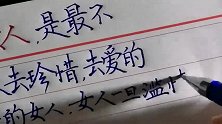 人，是最不
去珍惜，去爱的
的女人，女人一旦滥